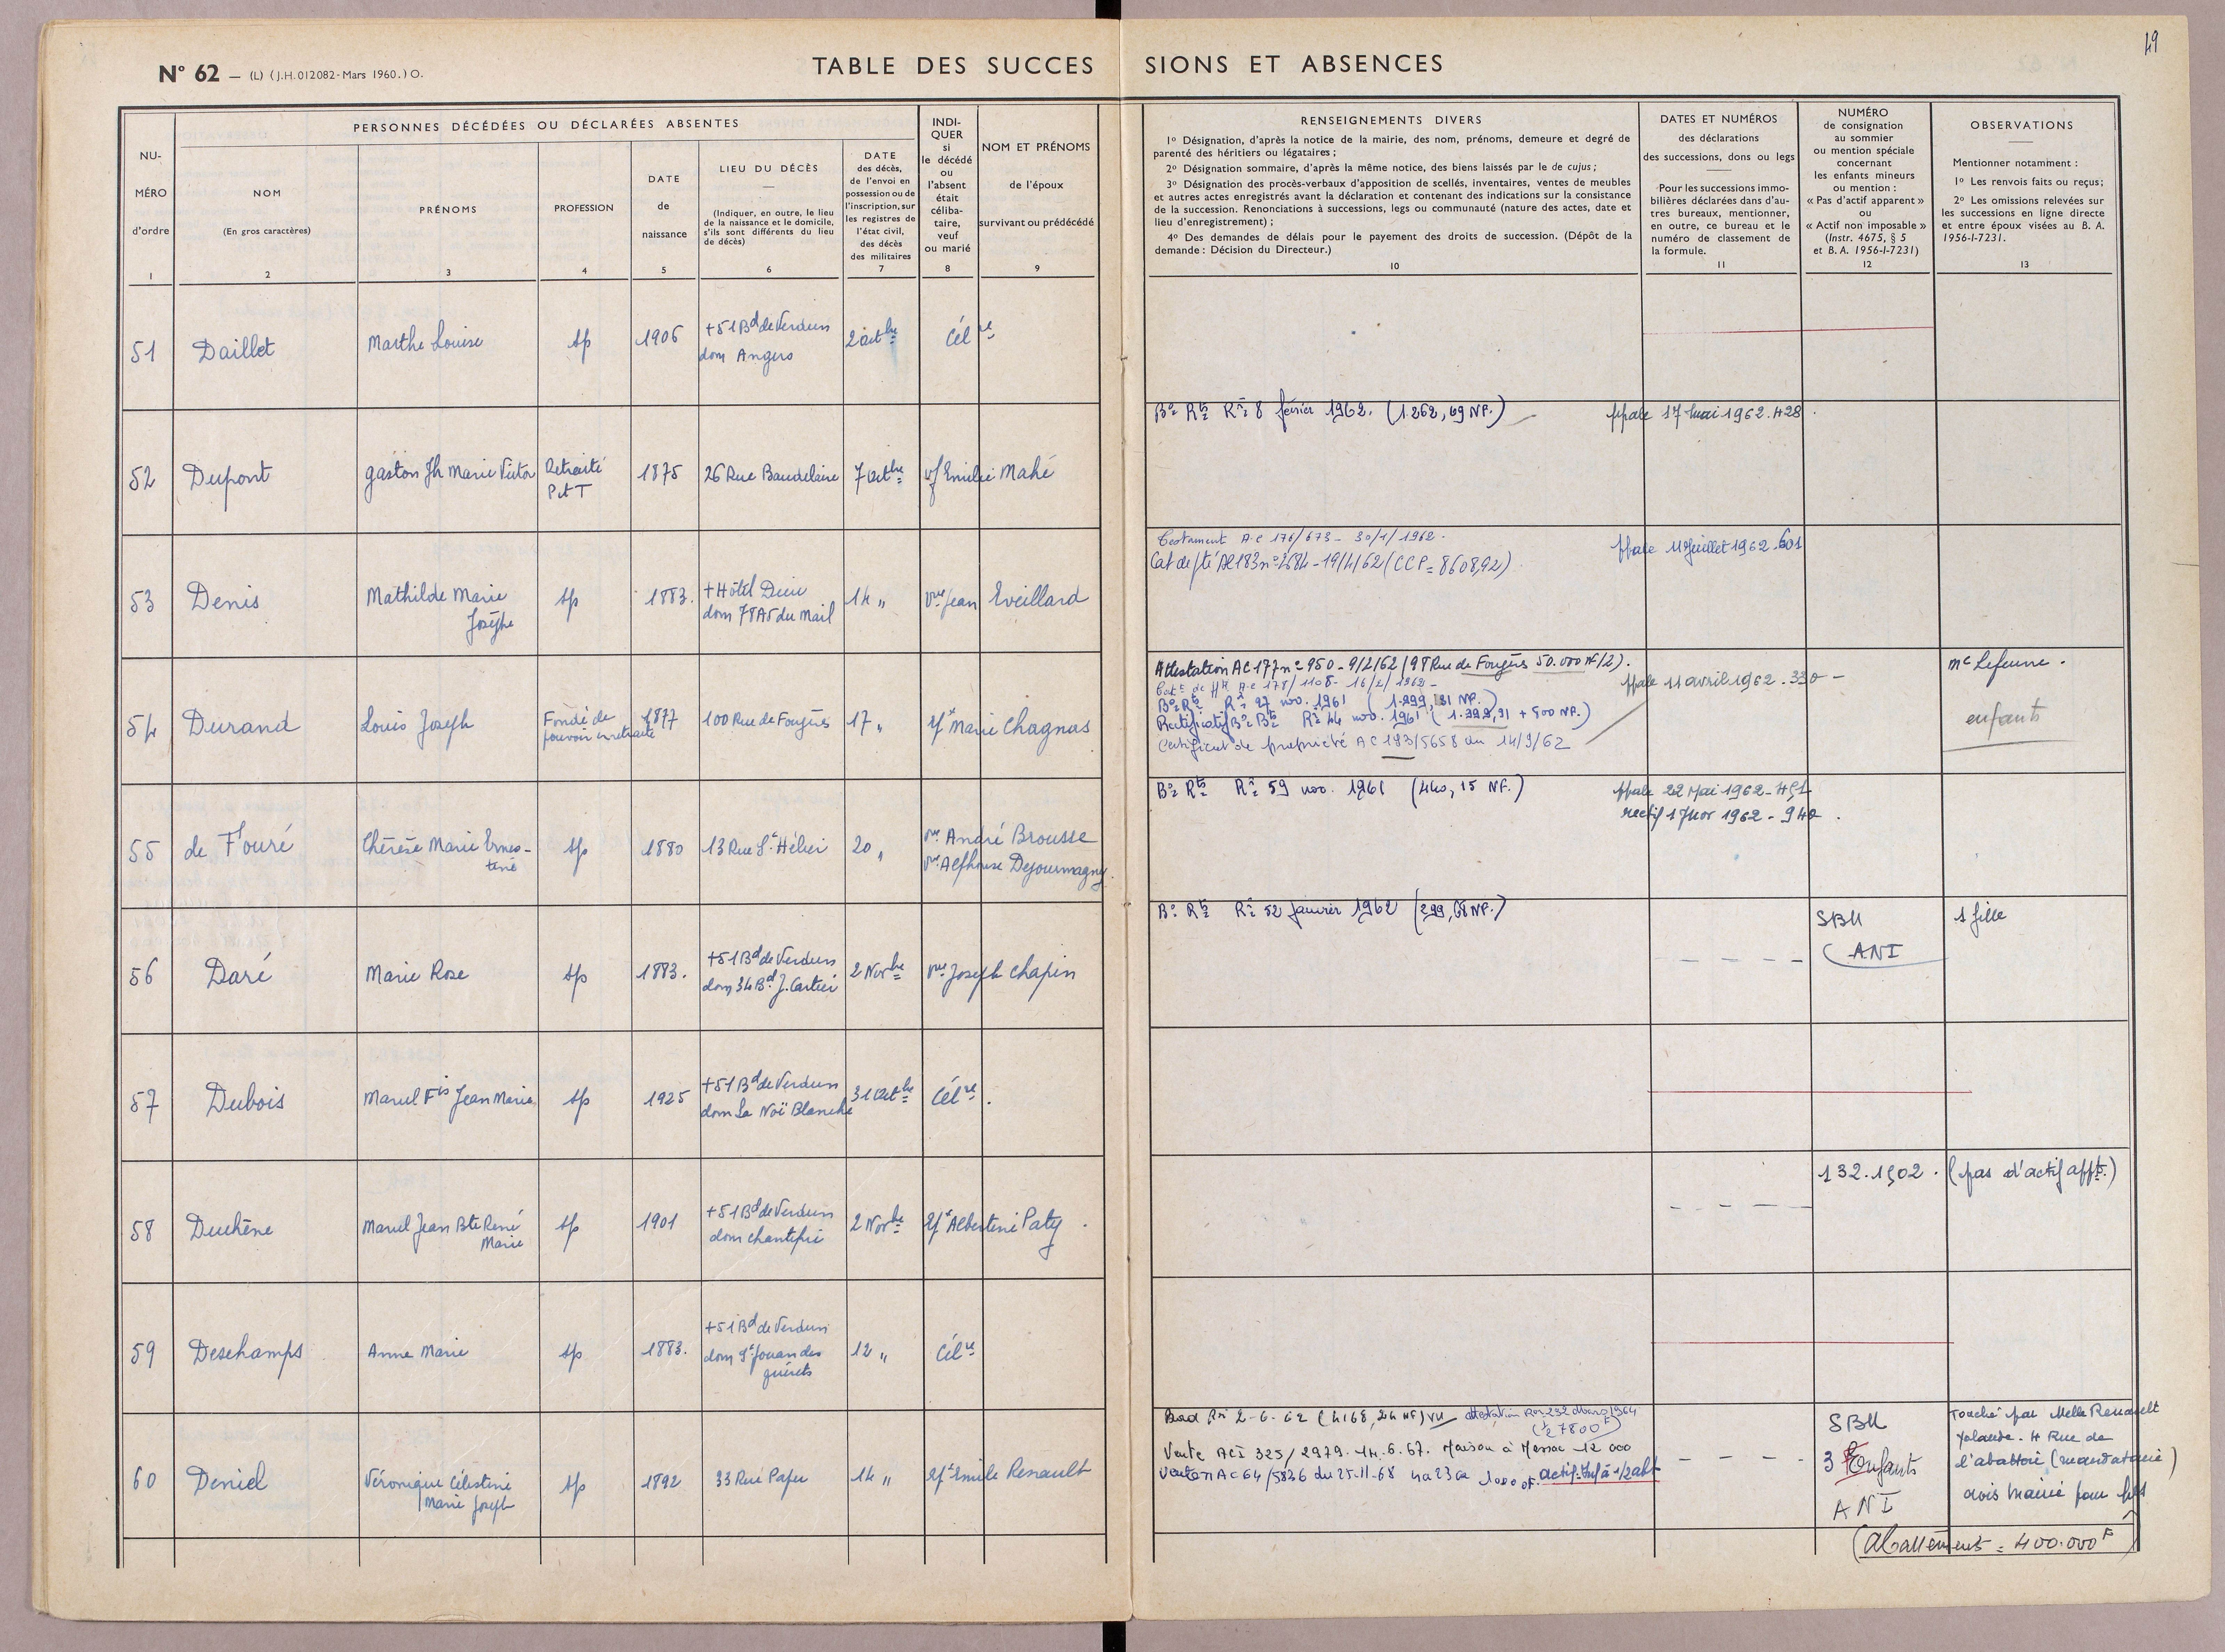 49
N° 62 — (L) (J.H. 012082 - Mars 1960.) O.
TABLE DES SUCCESSIONS ET ABSENCES
NU-
MÉRO
d'ordre
1
PERSONNES DÉCÉDÉES OU DÉCLARÉES ABSENTES
NOM
(En gros caractères)
2
PRÉNOMS
3
PROFESSION
4
DATE
de
naissance
5
LIEU DU DÉCÈS
(Indiquer, en outre, le lieu
de la naissance et le domicile,
s'ils sont différents du lieu
de décès)
6
DATE
des décès,
de l'envoi en
possession ou de
l'inscription, sur
les registres de
l'état civil,
des décès
des militaires
7
INDI-
QUER
si
le décédé
ou
l'absent
était
céliba-
taire,
veuf
ou marié
8
NOM ET PRÉNOMS
de l'époux
survivant ou prédécédé
9
RENSEIGNEMENTS DIVERS
1° Désignation, d'après la notice de la mairie, des nom, prénoms, demeure et degré de
parenté des héritiers ou légataires ;
2° Désignation sommaire, d'après la même notice, des biens laissés par le de cujus ;
3° Désignation des procès-verbaux d'apposition de scellés, inventaires, ventes de meubles
et autres actes enregistrés avant la déclaration et contenant des indications sur la consistance
de la succession. Renonciations à successions, legs ou communauté (nature des actes, date et
lieu d'enregistrement) ;
4° Des demandes de délais pour le payement des droits de succession. (Dépôt de la
demande : Décision du Directeur.)
10
DATES ET NUMÉROS
des déclarations
des successions, dons ou legs
Pour les successions immo-
bilières déclarées dans d'au-
tres bureaux, mentionner,
en outre, ce bureau et le
numéro de classement de
la formule.
11
NUMÉRO
de consignation
au sommier
ou mention spéciale
concernant
les enfants mineurs
ou mention :
« Pas d'actif apparent »
ou
« Actif non imposable »
(Instr. 4675, § 5
et B. A. 1956-I-7231)
12
OBSERVATIONS
Mentionner notamment :
1° Les renvois faits ou reçus;
2° Les omissions relevées sur
les successions en ligne directe
et entre époux visées au B. A.
1956-I-7231.
13
51 Daillet Marthe Louise sp 1906 +51 Bd de Verdun
dom Angers
2 octbre Célre
52 Dupont gaston Jh Marie Victor Retraité
P et T
1875 26 Rue Baudelaire 7 octbre vf Emilie Mahé
Bon Rts Rn 8 février 1962. (1.262,69 NF.)
ppale 17 Mai 1962. 428
53 Denis Mathilde Marie
Josèphe
sp 1883. + Hôtel Dieu
dom 78 Ab du Mail
14 " Vve Jean Eveillard
Testament A.C 176/673 - 30/1/1962.
Cat de pté AC 183 n° 2684 - 19/4/62 (CCP = 8608,92)
ppale 11 Juillet 1962. 601
54 Durand Louis Joseph Fondé de
pouvoir en retraite
1877 100 Rue de Fougères 17 " Ef Marie Chagnas
Attestation AC 177 n° 950 - 9/2/62 (98 Rue de Fougères 50.000 NF/2).
AC 178/1108 - 16/2/1962 -
Bon Rts Rn 27 nov. 1961 (1.999,31 NF.)
Rectificatif Bon Rts Rn 44 nov. 1961 (1.399,31 + 500 NF.)
Certificat de propriété AC 193/5658 du 14/9/62
ppale 11 avril 1962. 330 -
Me Lefeuve.
enfants
55 de Fouré Thérèse Marie Ernes-
tine
sp 1880 13 Rue St Hélier 20 " Vve André Brousse
Vve Alphonse Dejourmagny.
Bon Rts Rn 59 nov. 1961 (440,15 NF.)
ppale 22 Mai 1962 - 451
rectif 17 Nov 1962 - 940.
56 Daré Marie Rose sp 1883. +51 Bd de Verdun
dom 34 Bd J. Cartier
2 Novbre Vve Joseph Chapin
Bon Rts Rn 52 janvier 1962 (299,68 NF.)
SBM
(ANI
1 fille
57 Dubois Marcel Fis Jean Marie sp 1925 +51 Bd de Verdun
dom La Noë Blanche
31 octbre Célre.
58 Duchêne Marcel Jean Bte René
Marie
sp 1901 +51 Bd de Verdun
dom Chantepie
2 Novbre Ef Albertine Paty.
132.1502. (pas d'actif appt.)
59 Deschamps Anne Marie sp 1883. +51 Bd de Verdun
dom St Jouan des
guérets
12 " Célre
60 Deniel Véronique Célestine
Marie Joseph
sp 1892 33 Rue Papu 14 " Ef Emile Renault
Rn 2-6-62 (4168,24 NF) VU attestation Rn 232 Mars 1964
(7800 F)
Vente ACI 325/2979. 14.6.67. Maison à Messac 12 000
Vente AC 64/5836 du 25-11-68 4a23ca 1000F. actif Inf à 1/2 abt
SBM
3 Enfants
ANI
Touché par Melle Renault
Yolande - 4 Rue de
l'abattoir (mandataire)
avis mairie pour
(Abattements = 400.000 F)